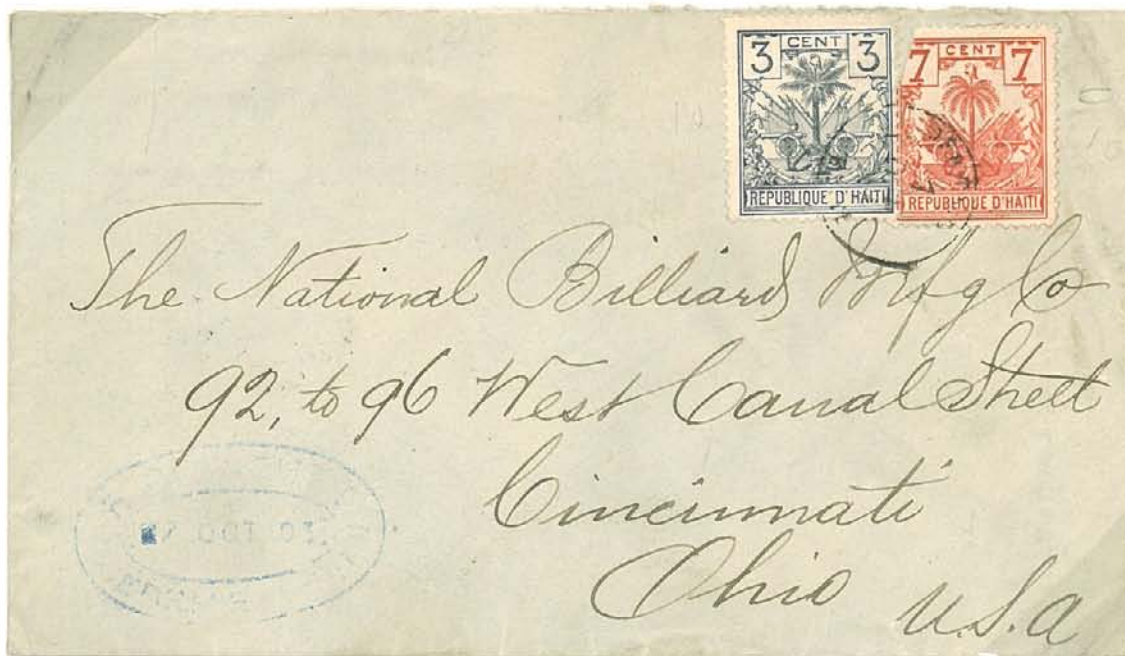 3 CENT 3
REPUBLIQUE D'HAITI
7 CENT 7
REPUBLIQUE D'HAITI
The National Billiard Mfg Co
92, to 96 West Canal Street
Cincinnati
Ohio
U.S.A